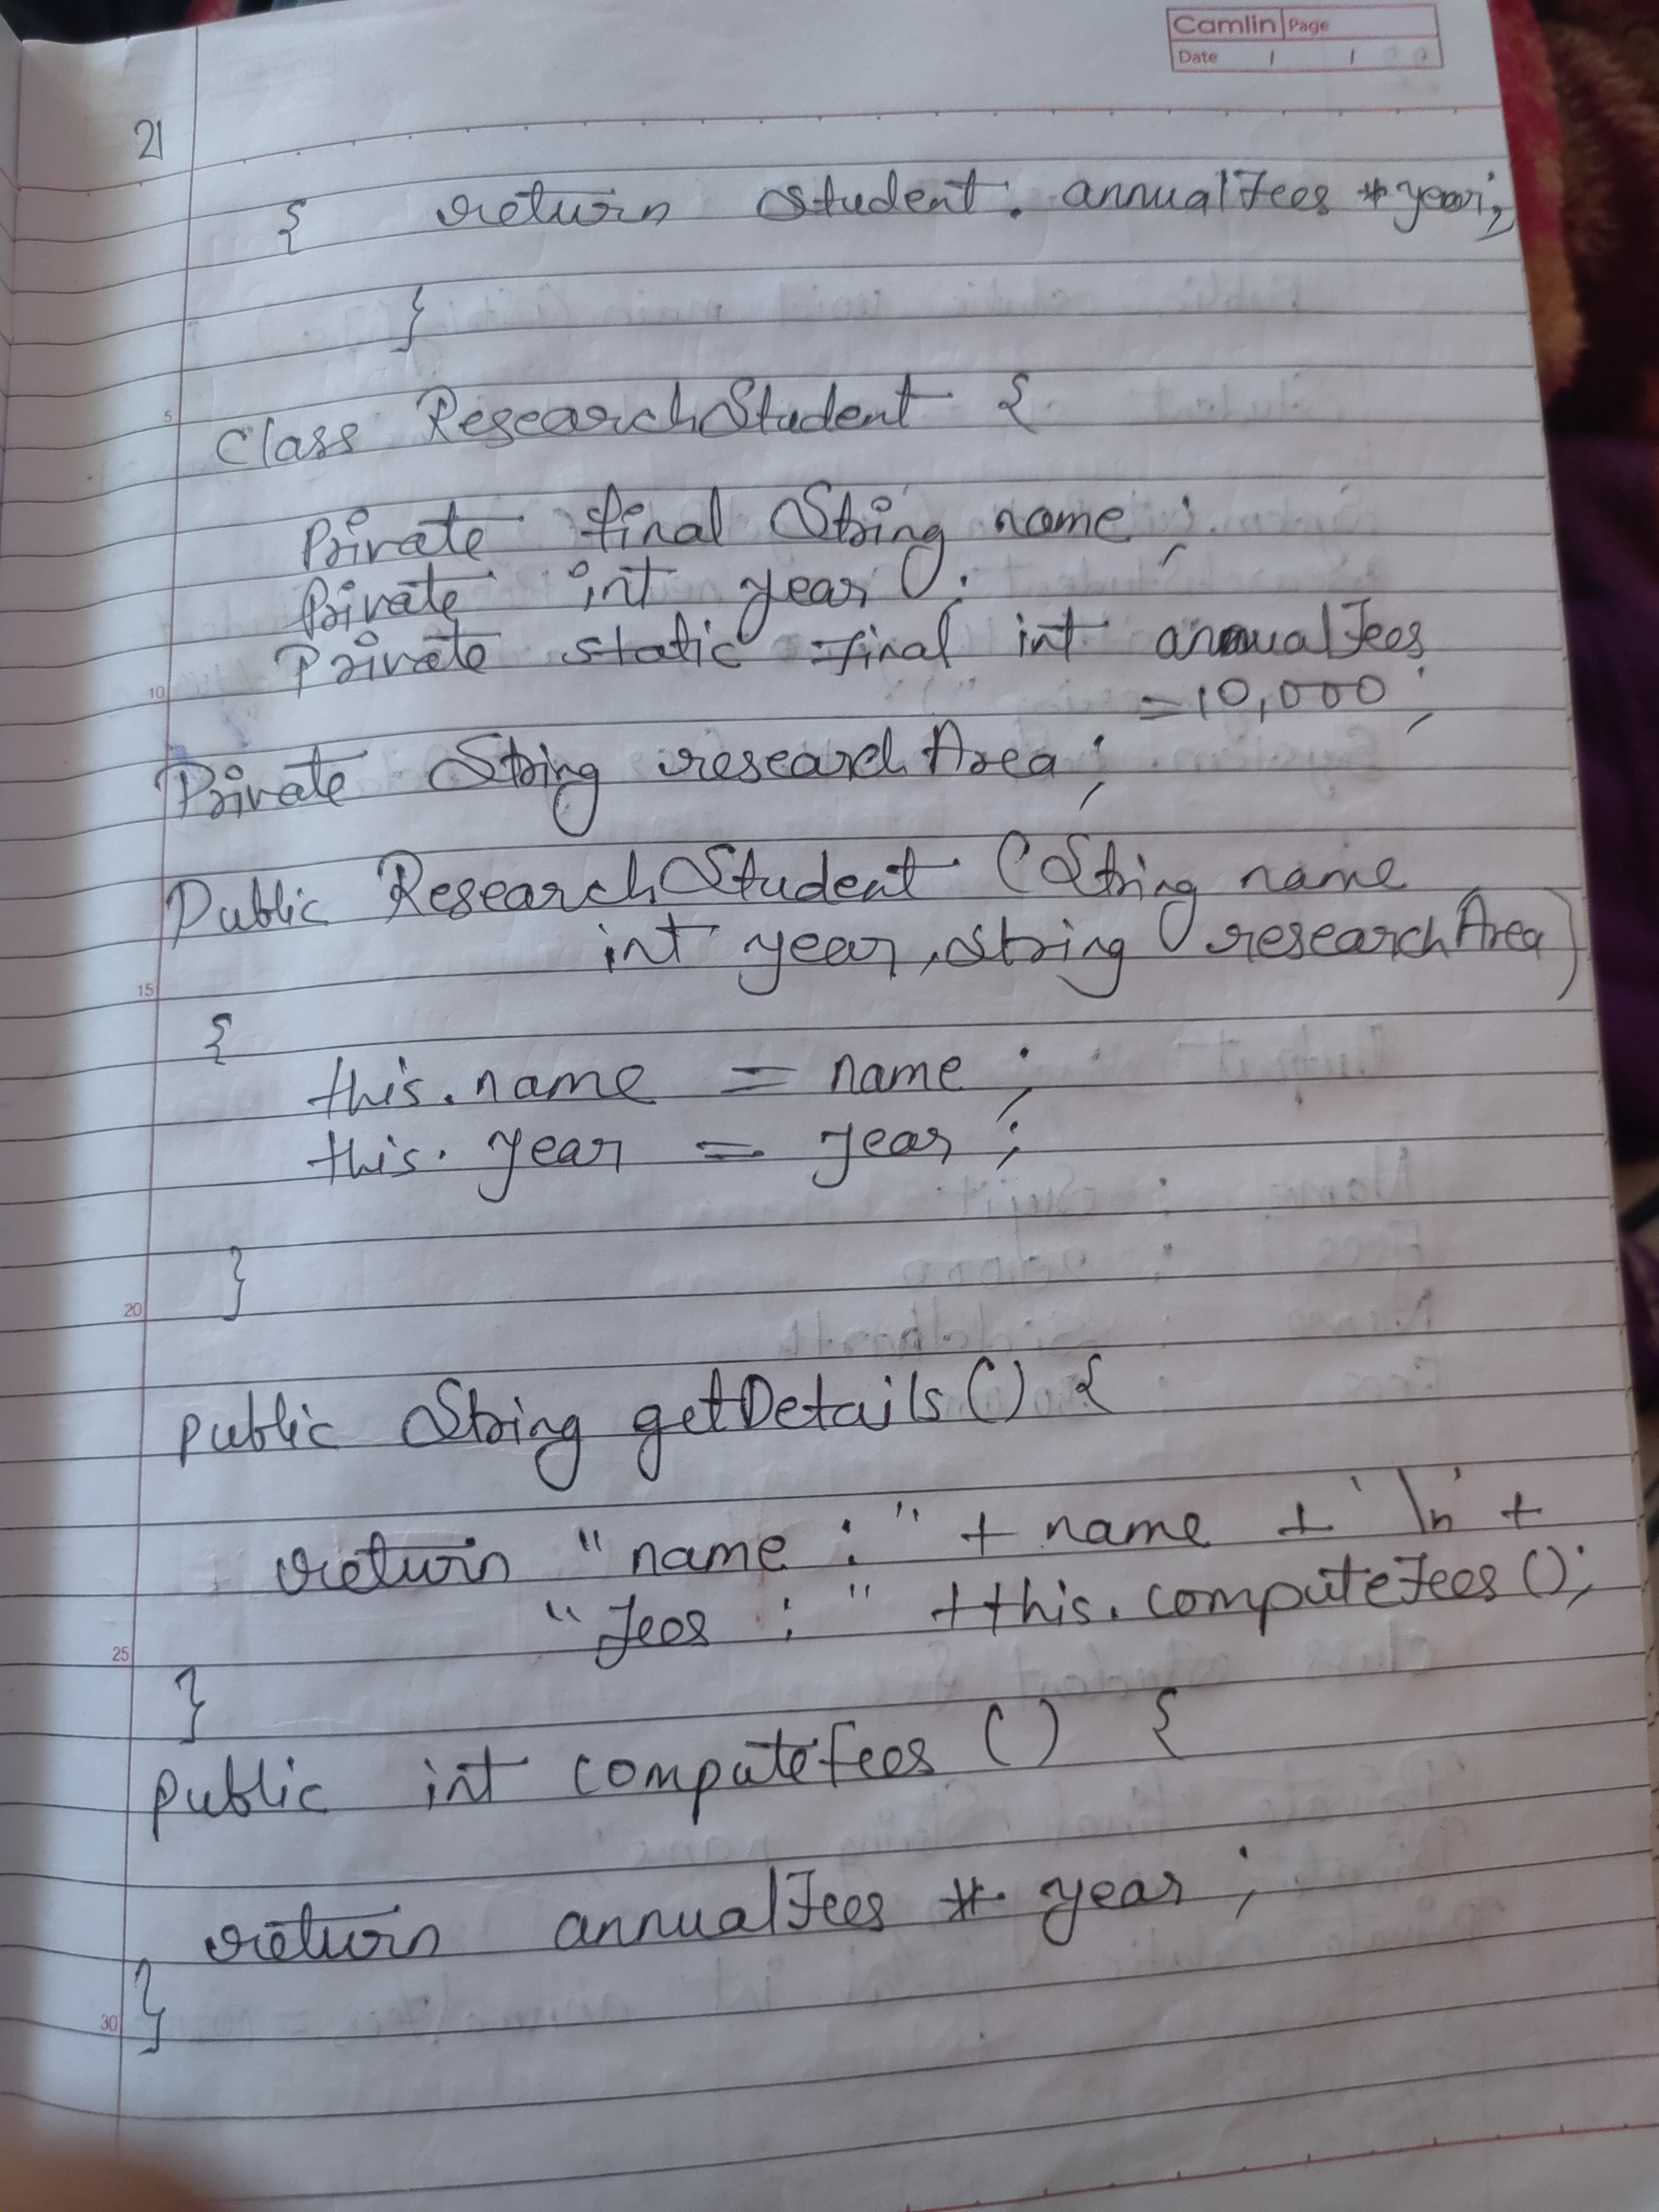 Camlin Page
Date / /
21
{ return Student. annualFees * year;
}
5
Class ResearchStudent {
Private final String name ;
Private int year ;
Private static final int annualFees
10
= 10,000 ;
Private String researchArea ;
Public ResearchStudent (String name
int year, String researchArea)
15
{
this.name = name ;
this. year = year ;
}
20
public String getDetails () {
return "name : " + name + '\n' +
"Fees : " + this. computeFees ();
25
}
public int computeFees () {
return annualFees * year ;
}
30